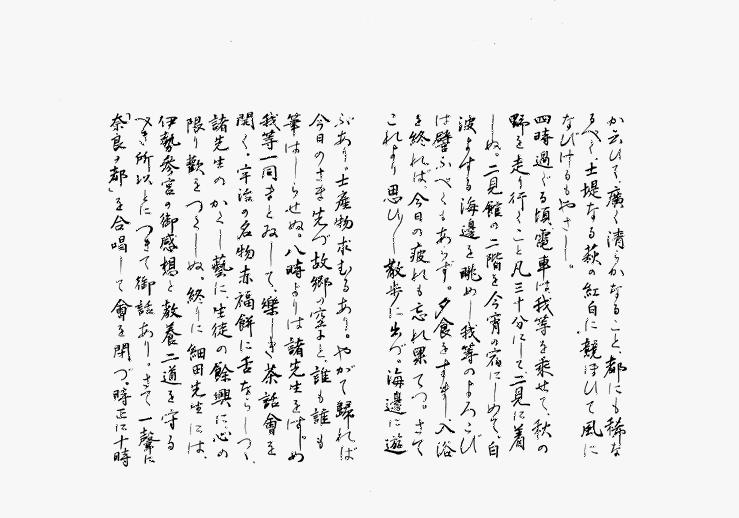 か云ひて、廣く清らかなること、都にも稀な
るべし。土堤なる萩の紅白に競ほひて風に
なびけるもやさし。
四時過ぐる頃、電車は我等を乘せて、秋の
野を走り行くこと凡三十分にして二見に着
しぬ。二見館の二階を今宵の宿にしめて、白
波よする海邊を眺めし我等のよろこび
は譬ふべくもあらず。夕食をすまし入浴
を終れば、今日の疲れも忘れ果てつ。さて
これより思ひ〳〵散歩に出づ。海邊に遊
ぶあり。土産物求むるあり。やがて歸れば
今日のさま先づ故郷の空にと誰も誰も
筆はしらせぬ。八時よりは諸先生をはじめ
我等一同まとゐして、樂しき茶話會を
開く。宇治の名物赤福餅に舌ならしつゝ、
諸先生のかくし藝に生徒の餘興に、心の
限り歡をつくしぬ。終りに細田先生には、
伊勢參宮の御感想と教養二道を守る
べき所以とにつきて御話あり。さて一聲に
「奈良ヲ都」を合唱して會を閉づ。時正に十時